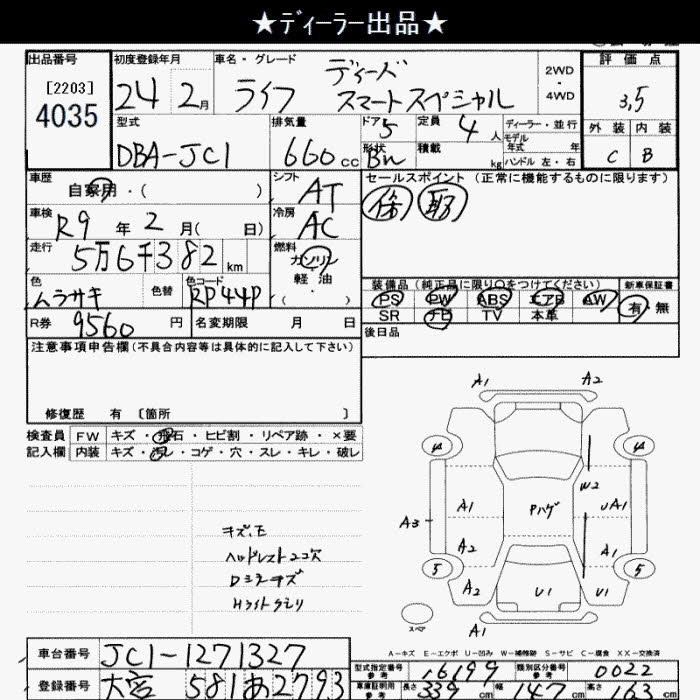 ★ディーラー出品★
出品番号 初度登録年月 車名・グレード 2WD・4WD 評価点
[2203]
4035
24 2月 ライフ ディーバ スマートスペシャル 3.5
型式 排気量 ドア 5 定員 4人 ディーラー・並行 外装 内装
DBA-JC1 660cc 形状 Bn 積載 kg モデル年式 年 ハンドル 左・右 C B
車歴 自家用・( ) シフト AT セールスポイント (正常に機能するものに限ります)
保 取
車検 R9年2月( 日) 冷房 AC
走行 5万6千382km 燃料 ガソリン 軽油 ( ・ )
色 ムラサキ 色替 色コード RP44P
装備品 (純正品に限り○をつけてください) 新車保証書
PS PW ABS エアB AW 有・無
SR ナビ TV 本革
R券 9560円 名変期限 月 日 後日品
注意事項申告欄(不具合内容等は具体的に記入して下さい)
修復歴 有 〔箇所 〕
検査員 FW キズ・飛石・ヒビ割・リペア跡・×要
記入欄 内装 キズ・汚レ・コゲ・穴・スレ・キレ・破レ
キズ、モ
ヘッドレスト2コ穴
Hライトクモリ
A1 A2
4 4
W2
A1 Pハゲ A1
A3 A2 A1
5 5
A2 U1 U1
スペア A1
A-キズ E-エクボ U-凹み W-補修跡 S-サビ C-腐食 XX-交換済
車台番号 JC1-1271327
型式指定番号 参考 16199 類別区分番号 参考 0022
登録番号 大宮 581あ2793
車庫証明用 参考 長さ 339cm 幅 147cm 高さ 163cm